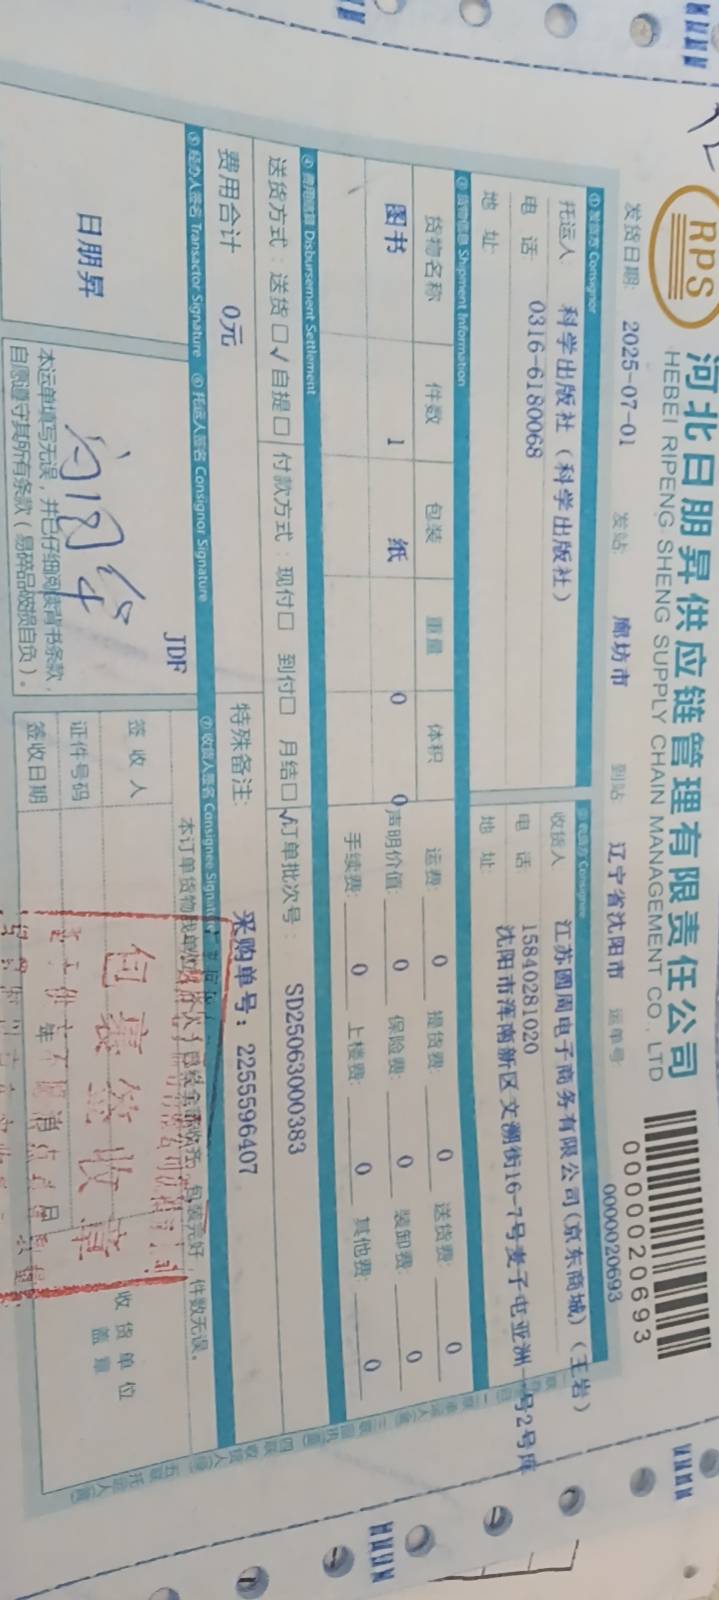 RPS
河北日朋昇供应链管理有限责任公司
HEBEI RIPENG SHENG SUPPLY CHAIN MANAGEMENT CO., LTD
0000020693
发货日期: 2025-07-01 发站: 廊坊市 到站: 辽宁省沈阳市 运单号: 0000020693
① 发货方 Consignor
托运人 科学出版社（科学出版社）
电 话 0316-6180068
地 址:
② 收货方 Consignee
收货人 江苏圆周电子商务有限公司(京东商城)（王岩）
电 话 15840281020
地 址: 沈阳市浑南新区文溯街16-7号麦子屯亚洲一号2号库
③ 货物信息 Shipment Information
货物名称 件数 包装 重量 体积
图书 1 纸 0 0
运费: 0 提货费: 0 送货费: 0
声明价值: 0 保险费: 0 装卸费: 0
手续费: 0 上楼费: 0 其他费: 0
④ 费用结算 Disbursement Settlement
送货方式: 送货□√ 自提□ 付款方式: 现付□ 到付□ 月结□√ 订单批次号: SD25063000383
费用合计 0元 特殊备注: 采购单号: 2255596407
⑤ 经办人签名 Transactor Signature ⑥ 托运人签名 Consignor Signature ⑦ 收货人签名 Consignee Signature
日朋昇
JDF
本运单填写无误，并已仔细阅读背书条款，
自愿遵守其所有条款（易碎品破损自负）。
包装完好，件数无误。
签 收 人
证件号码
签收日期
年
收货单位
盖 章
包裹签收章